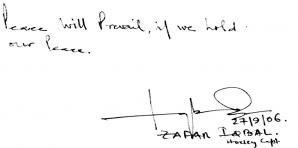 Peace will Prevail, if we hold
our Peace.
27/9/06.
ZAFAR IQBAL.
Hockey Capt.